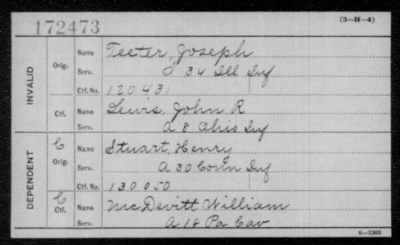 172473
(3-H-4)
INVALID
Orig.
Name Teeter, Joseph
Serv. J 34 Ill Inf
Ctf. No. 120431
Ctf.
Name Lewis, John R
Serv. A 8 Ohio Inf
DEPENDENT
C Orig.
Name Stuart, Henry
Serv. A 30 Conn Inf
Ctf. No. 130050
C Ctf.
Name McDevitt William
Serv. A 18 Pa Cav